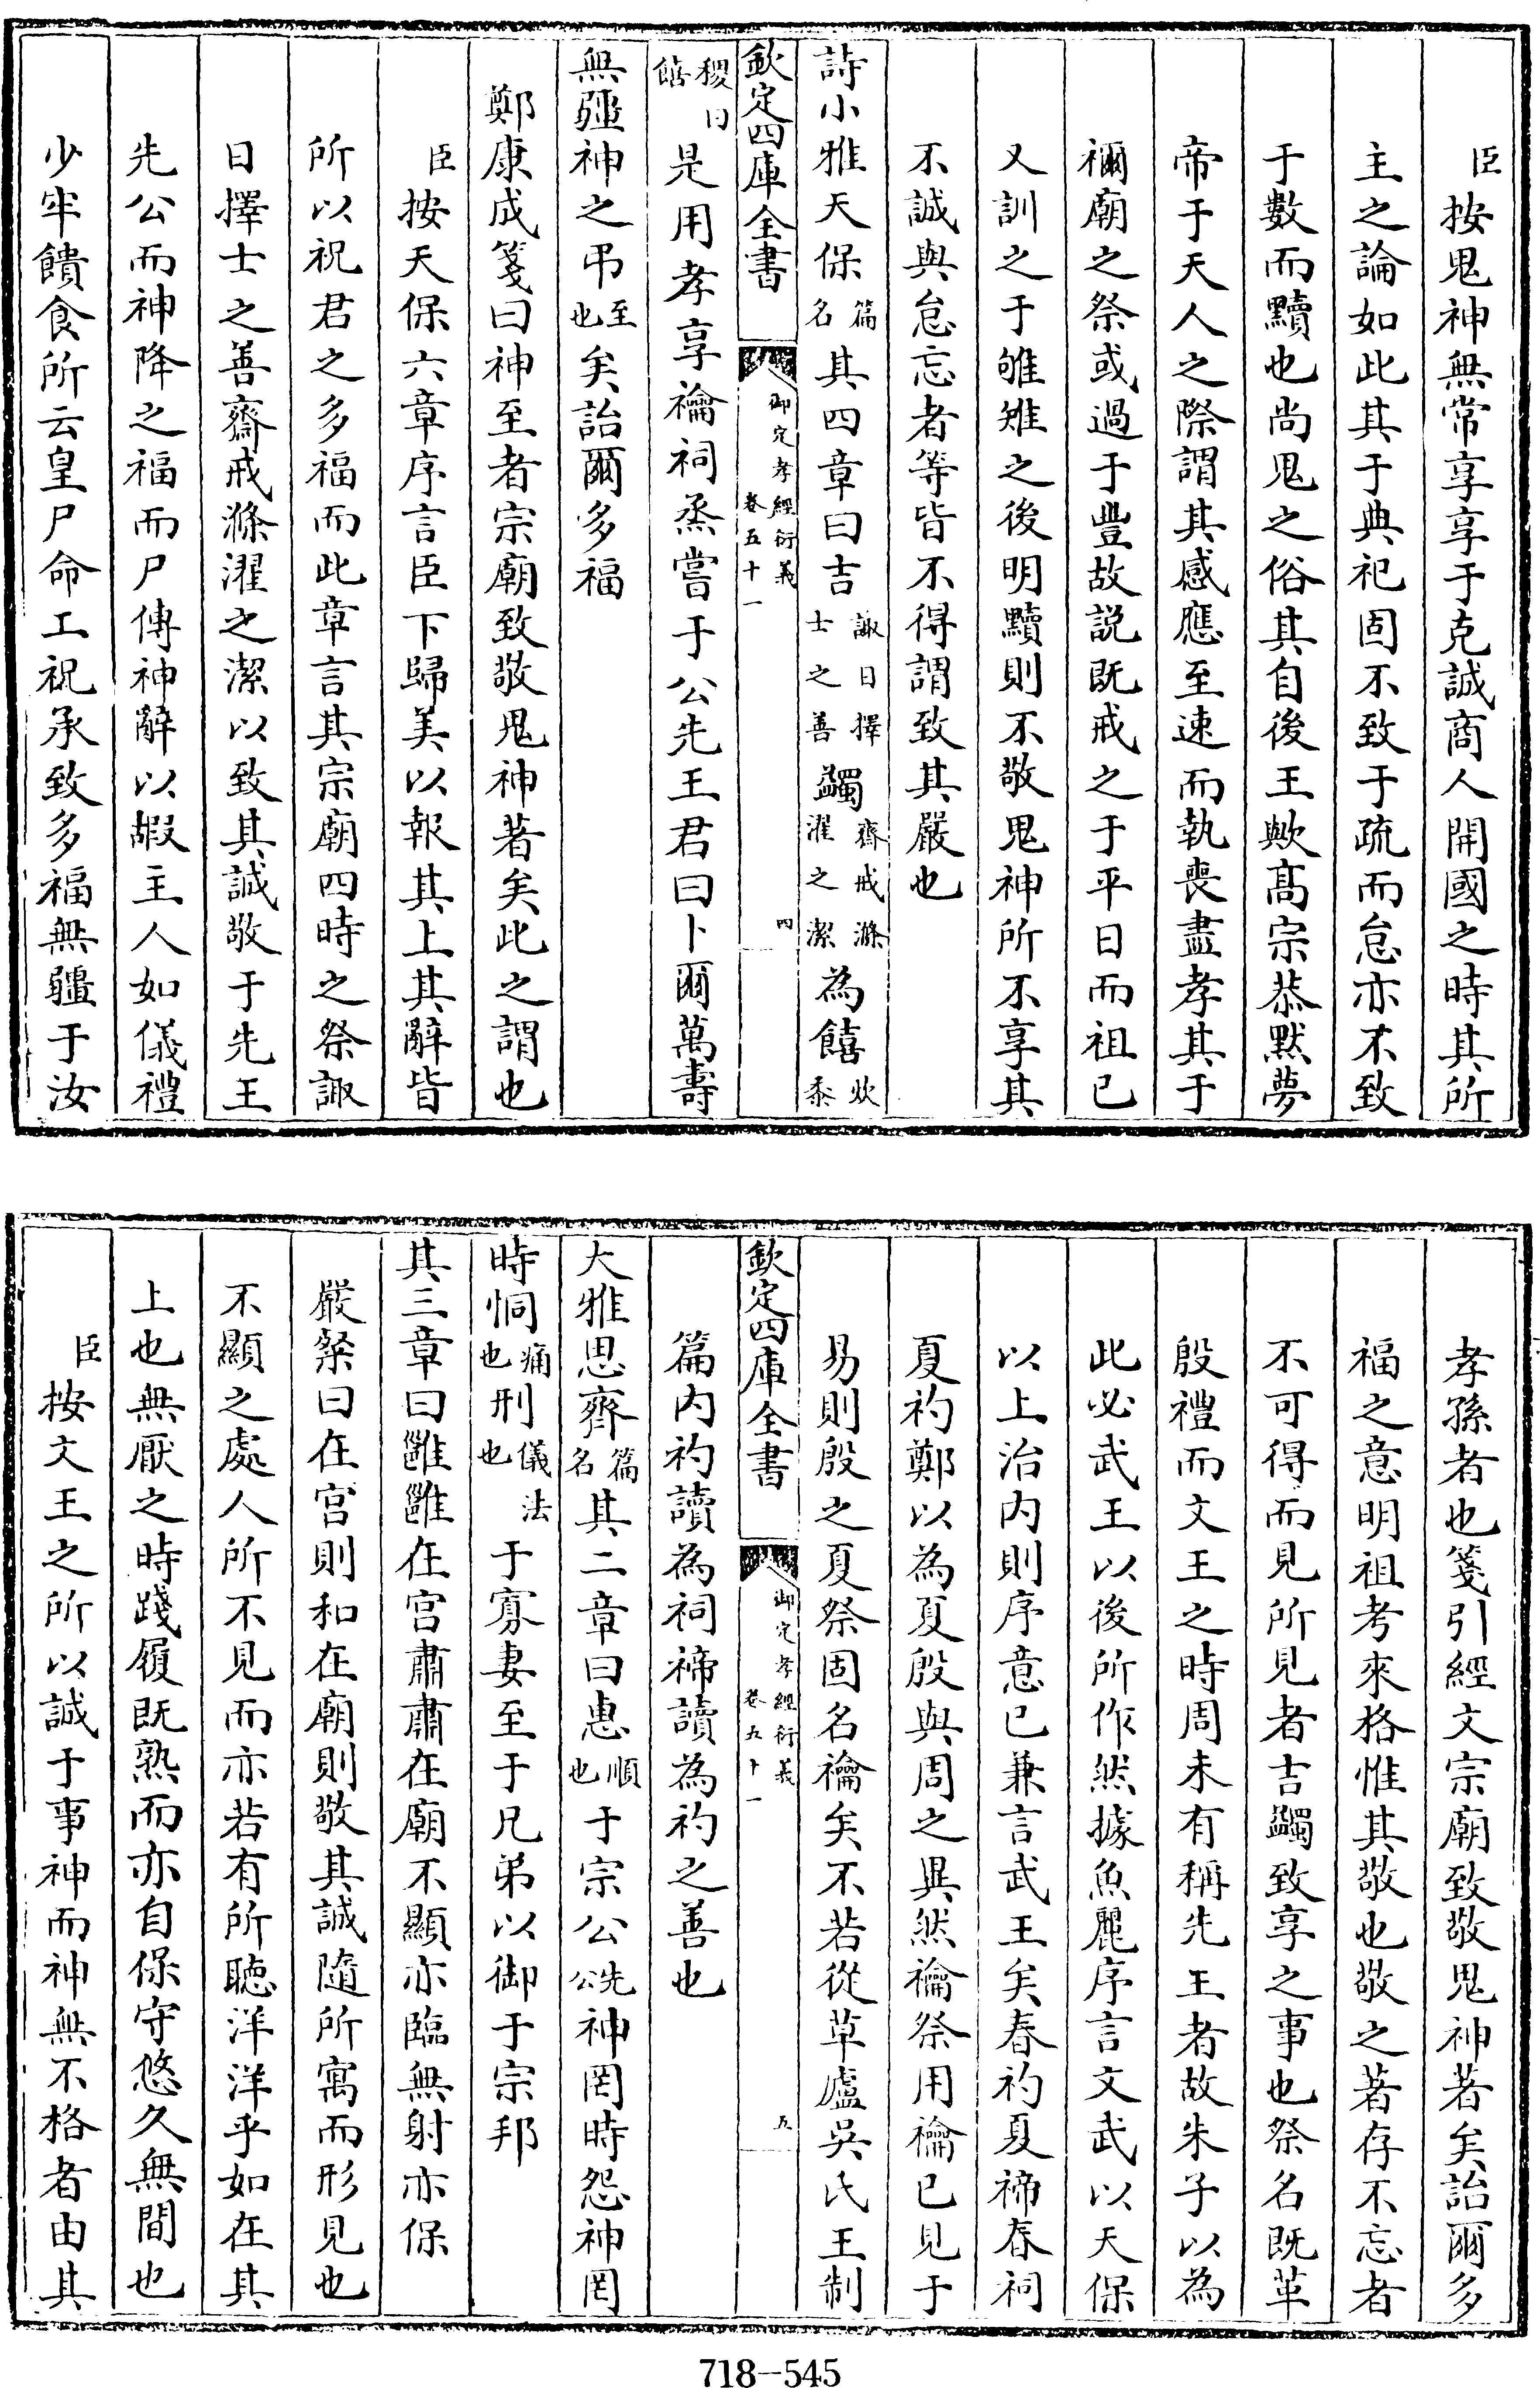 臣按鬼神無常享享于克誠商人開國之時其所
主之論如此其于典祀固不致于疏而怠亦不致
于數而黷也尚鬼之俗其自後王歟髙宗恭默夢
帝于天人之際謂其感應至速而執喪盡孝其于
禰廟之祭或過于豐故説既戒之于平日而祖已
又訓之于雊雉之後明黷則不敬鬼神所不享其
不誠與怠忘者等皆不得謂致其嚴也
詩小雅天保篇名其四章曰吉諏日擇士之善蠲齊戒滌濯之潔為饎炊黍
欽定四庫全書
御定孝經衍義
卷五十一
四
稷曰饎是用孝享禴祠烝嘗于公先王君曰卜爾萬壽
無疆神之弔至也矣詒爾多福
鄭康成箋曰神至者宗廟致敬鬼神著矣此之謂也
臣按天保六章序言臣下歸美以報其上其辭皆
所以祝君之多福而此章言其宗廟四時之祭諏
日擇士之善齋戒滌濯之潔以致其誠敬于先王
先公而神降之福而尸傳神辭以嘏主人如儀禮
少牢饋食所云皇尸命工祝承致多福無疆于汝
孝孫者也箋引經文宗廟致敬鬼神著矣詒爾多
福之意明祖考來格惟其敬也敬之著存不忘者
不可得而見所見者吉蠲致享之事也祭名既革
殷禮而文王之時周未有稱先王者故朱子以為
此必武王以後所作然據魚麗序言文武以天保
以上治内則序意已兼言武王矣春礿夏禘春祠
夏礿鄭以為夏殷與周之異然禴祭用禴已見于
易則殷之夏祭固名禴矣不若從草廬吳氏王制
欽定四庫全書
御定孝經衍義
卷五十一
五
篇内礿讀為祠禘讀為礿之善也
大雅思齊篇名其二章曰惠順也于宗公先公神罔時怨神罔
時恫痛也刑儀法也于寡妻至于兄弟以御于宗邦
其三章曰雝雝在宫肅肅在廟不顯亦臨無射亦保
嚴粲曰在宫則和在廟則敬其誠隨所寓而形見也
不顯之處人所不見而亦若有所聽洋洋乎如在其
上也無厭之時踐履既熟而亦自保守悠久無間也
臣按文王之所以誠于事神而神無不格者由其
718-545